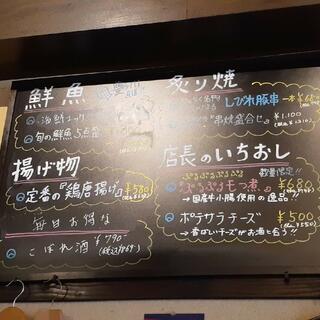 鮮魚
旬の鮮魚5点盛
揚げ物
定番の『鶏唐揚げ』 ¥580
毎日お得な
こぼれ酒 ¥790
炙り焼
しびれ豚串 一本
『串焼盛合せ』 ¥1,100
店長のいちおし
数量限定!!
ぷるぷるもつ煮 ¥680
→国産牛小腸使用の逸品!!
ポテサラチーズ ¥500
→香ばしいチーズがお酒と合う!!